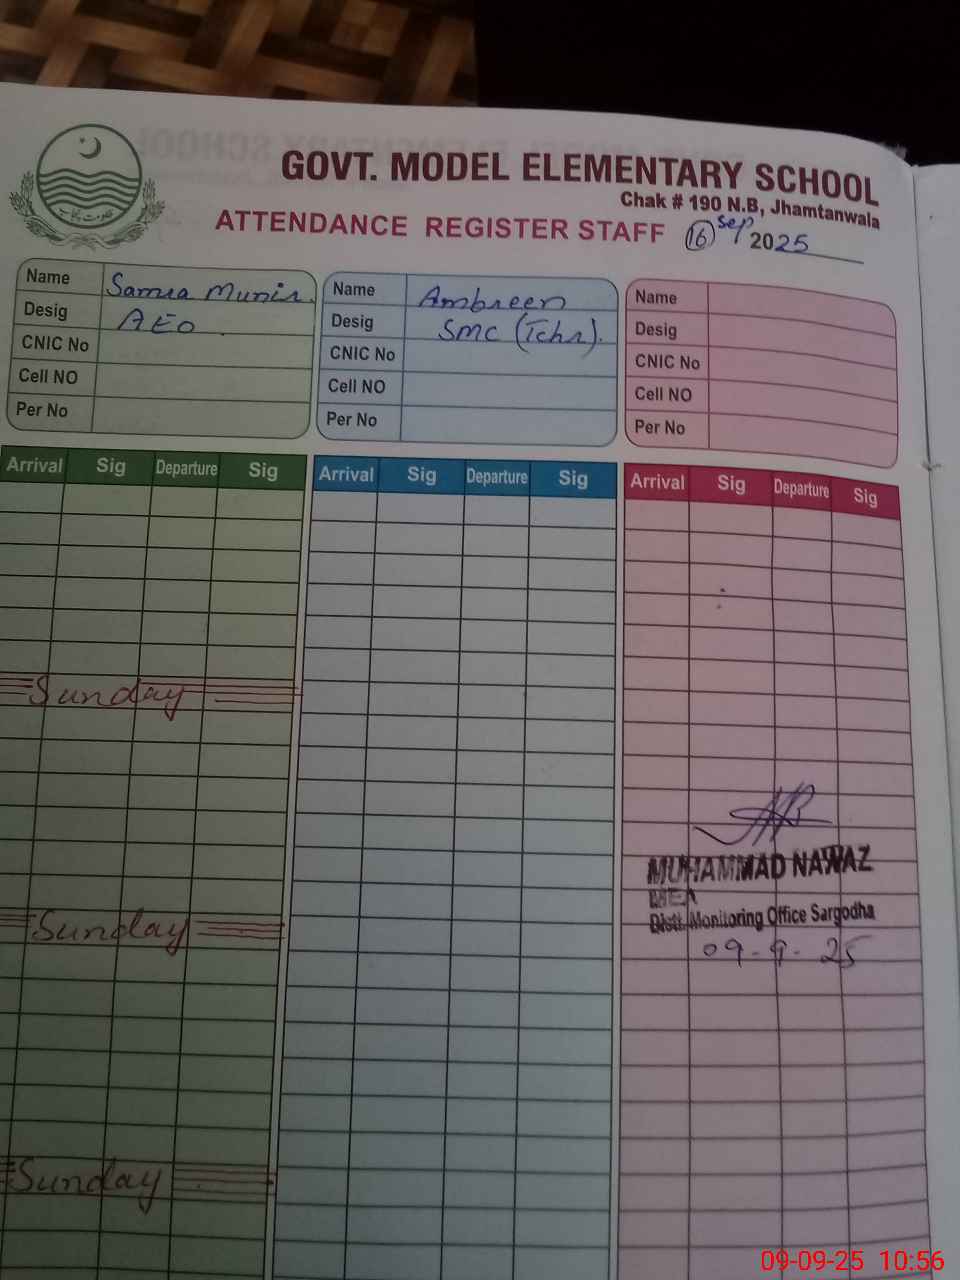 GOVT. MODEL ELEMENTARY SCHOOL
Chak # 190 N.B, Jhamtanwala
ATTENDANCE REGISTER STAFF 16 Sep 2025
Name Samra Munir.
Desig AEO
CNIC No
Cell NO
Per No
Name Ambreen
Desig SMC (Tchr).
CNIC No
Cell NO
Per No
Name
Desig
CNIC No
Cell NO
Per No
Arrival Sig Departure Sig
Arrival Sig Departure Sig
Arrival Sig Departure Sig
Sunday
MUHAMMAD NAWAZ
MEA
Distt. Monitoring Office Sargodha
09-9-25
Sunday
Sunday
09-09-25 10:56